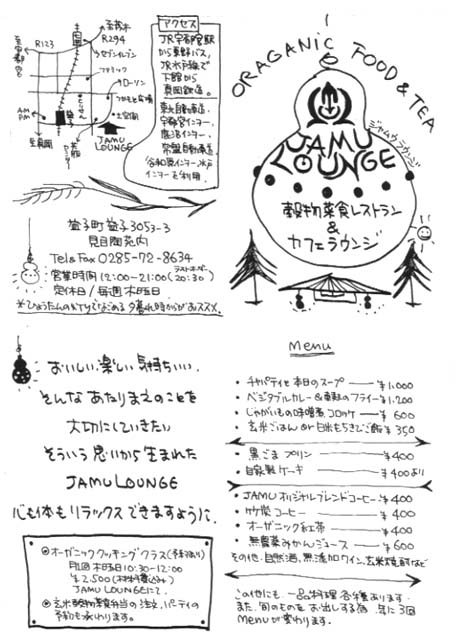 至茂木
R294
R123
至宇都宮
セブンイレブン
ファミマ
ローソン
つかもと広場
AM
PM
土空間
至真岡
JAMU
LOUNGE
アクセス
JR宇都宮駅
から東野バス。
JR水戸線で
下館から
真岡鉄道。
東北自動車道
宇都宮インター、
鹿沼インター、
常磐自動車道
谷和原インター、水戸
インターを利用。
益子町益子3053-3
見目陶苑内
Tel&Fax 0285-72-8634
営業時間 12:00~21:00(ラストオーダー20:30)
定休日/毎週木曜日
*ひょうたんのあかりでなごめる夕暮れ時からがおススメ。
ORAGANIC FOOD & TEA
JAMU
LOUNGE
ジャムウラウンジ
穀物菜食レストラン
&
カフェラウンジ
おいしい、楽しい、気持ちいい。
そんなあたりまえのことを
大切にしていきたい
そういう思いから生まれた
JAMU LOUNGE
心も体もリラックスできますように。
◎オーガニッククッキングクラス(予約あり)
月1回 木曜日 10:30-12:00
¥2,500(材料費込み)
JAMU LOUNGEにて。
◎玄米穀物菜食弁当の注文、パーティの
予約も承わります。
Menu
・チャパティと本日のスープ ― ¥1,000
・ベジタブルカレー&車麩のフライ ― ¥1,200
・じゃがいもの味噌煮コロッケ ― ¥600
・玄米ごはん or 白米もちきびご飯 ¥350
・黒ごまプリン ― ¥400
・自家製ケーキ ― ¥400より
・JAMUオリジナルブレンドコーヒー ¥400
・竹炭コーヒー ― ¥400
・オーガニック紅茶 ― ¥400
・無農薬みかんジュース ― ¥600
その他、自然酒、無添加ワイン、玄米焼酎など
この他にも、一品料理各種あります。
また、旬のものをお出しする為、年に3回
Menuが変わります。